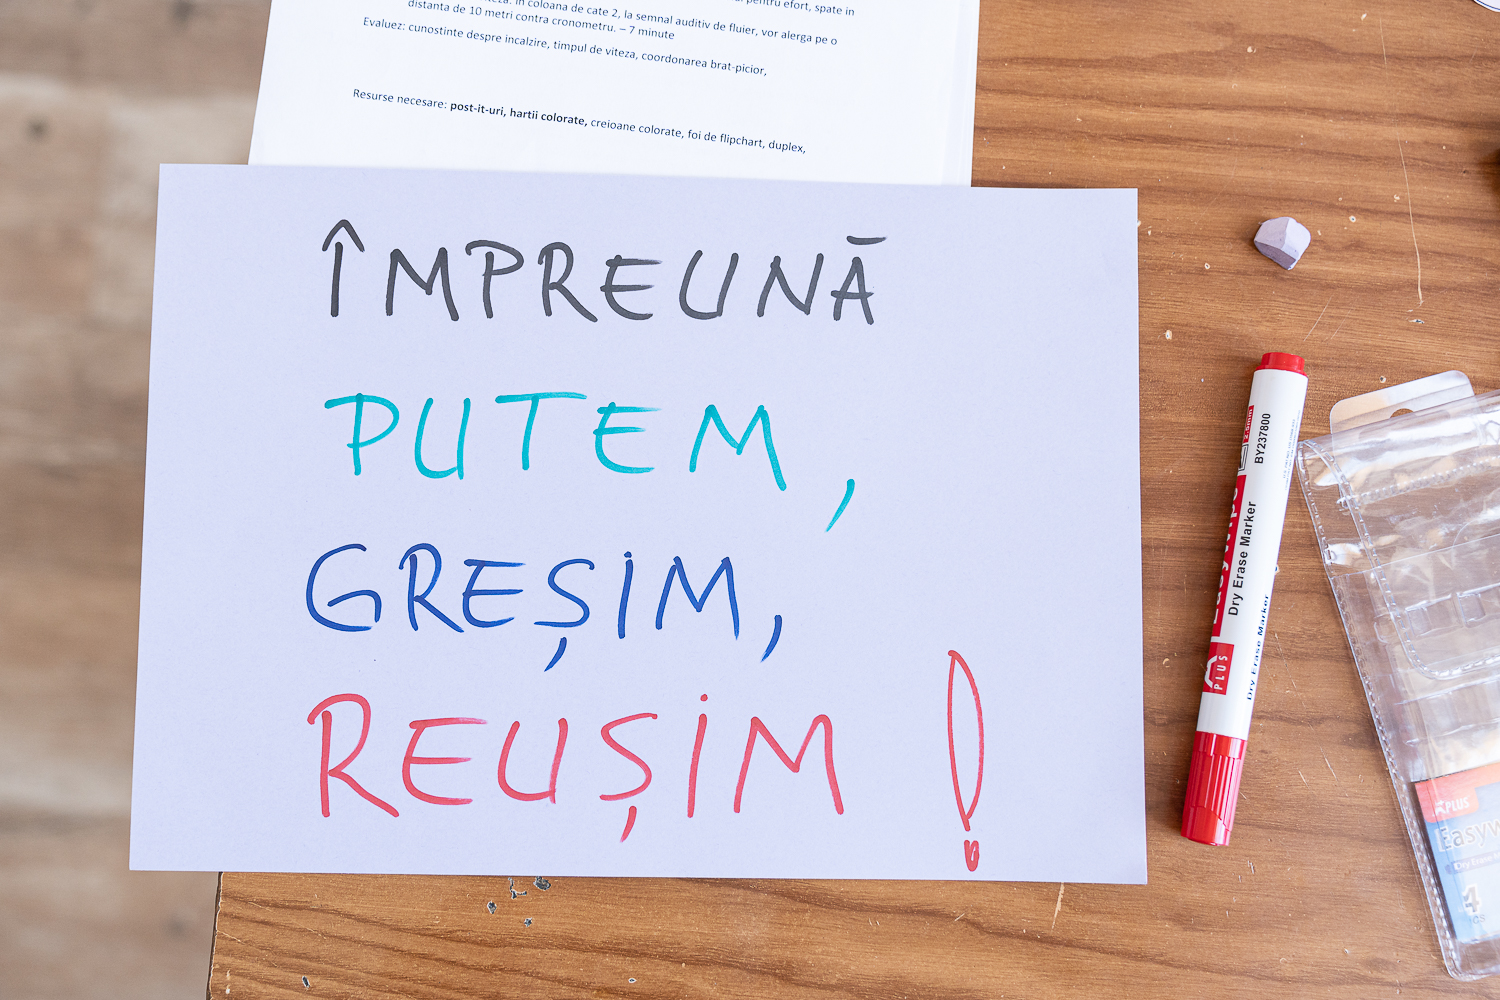 în coloana de cate 2, la semnal auditiv de fluier, vor alerga pe o
pentru efort, spate in
distanta de 10 metri contra cronometru. – 7 minute
Evaluez: cunostinte despre incalzire, timpul de viteza, coordonarea brat-picior,
Resurse necesare: post-it-uri, hartii colorate, creioane colorate, foi de flipchart, duplex,
ÎMPREUNĂ
PUTEM,
GREȘIM,
REUȘIM!
2.5mm
BY237800
Dry Erase Marker
Dry Erase Marker
PLUS
PLUS
Easyw
Dry Erase
4